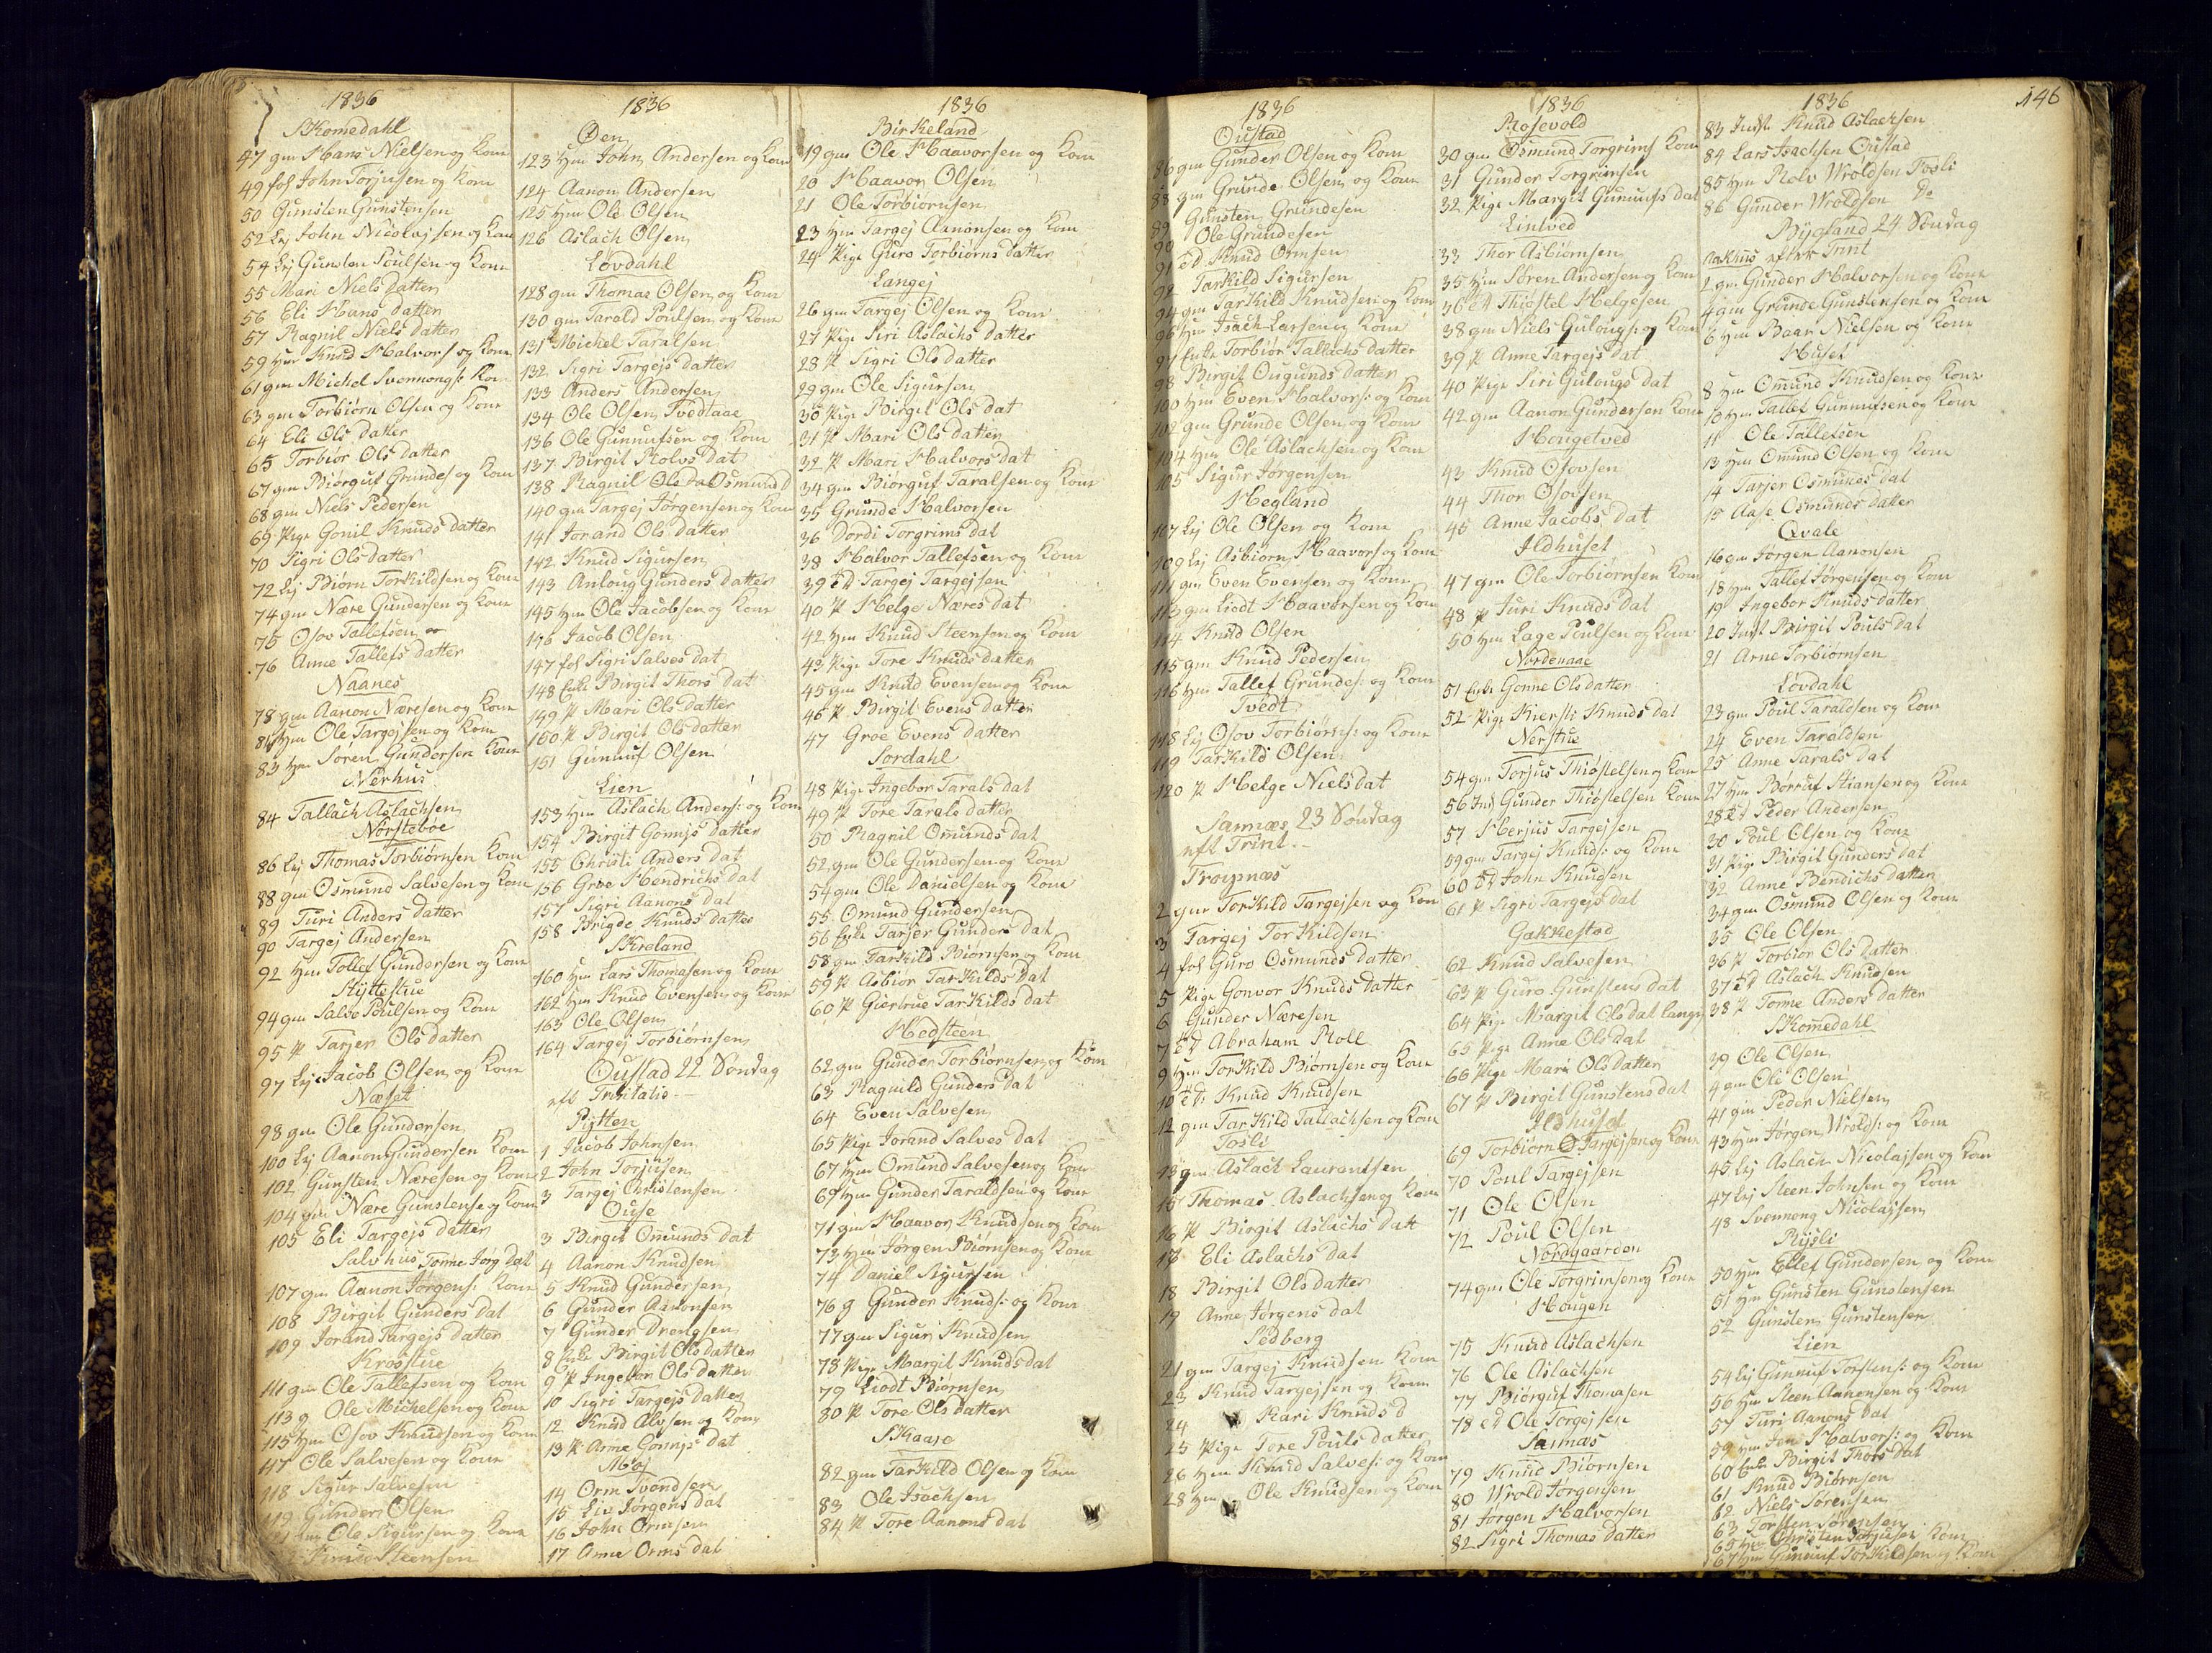 1836
Skomedahl
47 gm Hans Nielsen og Kone
49 fol John Torjusen og Kone
50 Gunsten Gunstensen
52 Lej John Nicolajsen og Kone
54 Lej Gunsten Poulsen og Kone
55 Mari Niels Datter
56 Eli Hans datter
57 Ragnil Niels datter
59 Hm Knud Halvors og Kone
61 gm Michel Svennongs: Kone
63 gm Torbiørn Olsen og Kone
64 Eli Ols datter
65 Torbiør Ols datter
67 gm Biørguf Grundes og Kone
68 gm Niels Pedersen
69 Pige Gonil Knuds datter
70 Sigri Ols datter
72 Lej Biørn Torkildsen og Kone
74 gm Nære Gundersen og Kone
75 Osov Tallefsen
76 Anne Tallefs datter
Naanes
78 gm Aanon Næresen og Kone
81 Hm Ole Targejsen og Kone
83 Hm Søren Gundersen Kone
Nerhus
84 Tallach Aslachsen
Nørstebøe
86 Lej Thomas Torbiørnsen Kone
88 gm Osmund Salvesen og Kone
89 Turi Anders datter
90 Targej Andersen
92 Hm Tollef Gundersen og Kone
Hyttestue
94 gm Salve Poulsen og Kone
95 P Tarjer Ols datter
97 Lej Jacob Olsen og Kone
Næset
98 gm Ole Gundersen
100 Lej Aanon Gundersen Kone
102 Gunsten Næresen og Kone
104 gm Nære Gunstense og Kone
105 Eli Targejs datter
Salvhus Tonne Jørg dat
107 gm Aanon Jørgens: Kone
108 Birgit Gunders dat
109 Jorand Targejs datter
Krosstue
111 gm Ole Tallefsen og Kone
113 g Ole Michelsen og Kone
115 Hm Osov Knudsen og Kone
117 Ole Salvesen og Kone
118 Sigur Salvesen
119 Gunder Olsen
121 Ole Sigursen og Kone
Knud Steensen
1836
Øen
123 Hm John Andersen og Kone
124 Aanon Andersen
125 Hm Ole Olsen
126 Aslach Olsen
Løvdahl
128 gm Thomas Olsen og Kone
130 gm Tarald Poulsen og Kone
131 Michel Taralsen
132 Sigri Targejs datter
133 Anders Andersen
134 Ole Olsen Tvedtaae
136 Ole Gunnufsen og Kone
137 Birgit Rolvs dat
138 Ragnil Ols da Osmund D
140 gm Targej Jørgensen og Kone
141 Jorand Ols datter
142 Knud Sigursen
143 Anloug Gunders datter
145 Hm Ole Jacobsen og Kone
146 Jacob Olsen
147 fol Sigri Salves dat
148 Enke Birgit Thors dat
149 P Mari Ols datter
160 P Birgit Ols datter
151 Gunnuf Olsen
Lien
153 Hm Aslach Anders: og Kone
154 Birgit Gonnjs datter
155 Christi Anders dat
156 Groe Hendrichs dat
157 Sigri Aanons dat
158 Brigde Knuds datter
Skreland
160 Hm Lars Thomasen og Kone
162 Hm Knud Evensen og Kone
163 Ole Olsen
164 Targej Torbiørnsen
Oustad 22 Søndag
eft Trinitatis
Pytten
1 Jacob Johnsen
2 John Torjusen
3 Targej Christensen
Ouse
3 Birgit Omunds dat
4 Aanon Knudsen
5 Knud Gundersen
6 Gunder Aanonsen
7 Gunder Drengsen
8 Enke Birgit Ols datter
9 P Ingebor Ols datter
10 Sigri Targejs datter
12 Knud Alvsen og Kone
13 P Anne Gonnjs dat
Moj
14 Orm Svondsen
15 Liv Jørgens dat
16 John Ormsen
17 Anne Orms dat
1836
Birkeland
19 gm Ole Haavorsen og Kone
20 Haavor Olsen
21 Ole Torbiørnsen
23 Hm Targej Aanonsen og Kone
24 Pige Guro Torbiørns datter
Langej
26 gm Targej Olsen og Kone
27 Pige Siri Aslachs datter
28 P Sigri Ols datter
29 gm Ole Sigursen
30 Pige Birgit Ols dat
31 P Mari Ols datter
32 P Mari Halvors dat
34 gm Biørguf Taralsen og Kone
35 Grunde Halvorsen
36 Dordi Torgrims dat
38 Halvor Tallefsen og Kone
39 ED Targej Targejsen
40 P Helge Næres dat
42 Hm Knud Steensen og Kone
43 Pige Tore Knuds datter
45 gm Knud Evensen og Kone
46 P Birgit Evens datter
47 Groe Evens datter
Sordahl
48 Pige Ingebor Tarals dat
49 P Tore Tarals datter
50 Ragnil Omunds dat
52 gm Ole Gundersen og Kone
54 gm Ole Danielsen og Kone
55 Omund Gundersen
56 Enke Tarjer Gunders dat
58 gm Tarkild Biørnsen og Kone
59 P Asbiør Tarkilds dat
60 P Giertrue Tarkilds dat
Hodsteen
62 gm Gunder Torbiørnsen og Kone
63 Ragnild Gunders dat
64 Even Salvesen
65 Pige Jorand Salves dat
67 Hm Omund Salvesen og Kone
69 Hm Gunder Taraldsen og Kone
71 gm Haavor Knudsen og Kone
73 Hm Jørgen Biørnsen og Kone
74 Daniel Sigursen
76 g Gunder Knuds: og Kone
77 gm Sigur Knudsen
78 Pige Margit Knuds dat
79 Liodt Biørnsen
80 P Tore Ols datter
Skaaje
82 gm Tarkild Olsen og Kone
83 Ole Isachsen
84 P Tore Aanons dat
1836
Oustad
86 gm Gunder Olsen og Kone
88 gm Grunde Olsen og Kone
89 Gunsten Grundesen
90 Ole Grundesen
91 ED Knud Ormsen
92 Tarkild Sigursen
94 gm Tarkild Knudsen og Kone
96 Hm Isach Larsen og Kone
97 Enke Torbiør Tallachs datter
98 Birgit Ougunds datter
100 Hm Even Halvors: og Kone
102 gm Grunde Olsen og Kone
104 Hm Ole Aslachsen og Kone
105 Sigur Jørgensen
Hegland
107 Lej Ole Olsen og Kone
109 Lej Asbiørn Haavors og Kone
111 gm Even Evensen og Kone
113 gm Liodt Haavorsen og Kone
114 Knud Olsen
115 gm Knud Pedersen
116 Hm Tallef Grundes: og Kone
Tvedt
118 Lej Osov Torbiørns: og Kone
119 Tarkild Olsen
120 P Helge Niels dat
Sannæs 23 Søndag
eft Trint.
Frøysnæs
2 gm Torkild Targejsen og Kone
3 Targej Torkildsen
4 fol Guro Osmunds datter
5 Pige Gonvor Knuds datter
6 Gunder Næresen
7 ED Abraham Roll
9 Hm Torkild Biørnsen og Kone
10 ED Knud Knudsen
12 gm Tarkild Tallachsen og Kone
Tosli
13 gm Aslach Laurentsen
15 Thomas Aslachsen og Kone
16 P Birgit Aslachs datt
17 Eli Aslachs dat
18 Birgit Ols datter
19 Anne Jørgens dat
Sedberg
21 gm Targej Knudsen Kone
23 Knud Targejsen og Kone
24 Kari Knuds d
25 Pige Tore Pouls datter
26 Hm Knud Salves: og Kone
28 Hm Ole Knudsen og Kone
1836
Rosevold
30 gm Osmund Torgrims Kone
31 Gunder Torgrimsen
32 Pige Margit Gunnufs dat
Lintved
33 Thor Asbiørnsen
35 Hm Søren Andersen og Kone
36 ED Thiøstel Helgesen
38 gm Niels Gulougs: og Kone
39 P Anne Targejs dat
40 Pige Siri Gulougs dat
42 gm Aanon Gundersen Kone
Hougetved
43 Knud Osovsen
44 Thor Osovsen
45 Anne Jacobs dat
Ildhuset
47 gm Ole Torbiørnsen Kone
48 P Turi Knuds dat
50 Hm Lage Poulsen og Kone
Nordenaae
51 Enke Gonne Ols datter
52 Pige Kiersti Knuds dat
Nerstue
54 gm Torjus Thiøstelsen og Kone
56 Ind Gunder Thiøstelsen Kone
57 Herjus Targejsen
59 gm Targej Knuds: og Kone
60 ED John Knudsen
61 P Sigri Targejs dat
Gakkestad
62 Knud Salvesen
63 P Guro Gunstens dat
64 Pige Margit Ols dat langej
65 Pige Anne Ols dat
66 Pige Mari Ols datter
67 P Birgit Gunstens dat
Ildhuset
69 Torbiørn O Targejsen og Kone
70 Poul Targejsen
71 Ole Olsen
72 Poul Olsen
Nordgaarden
74 gm Ole Torgrimsen og Kone
Hougen
75 Knud Aslachsen
76 Ole Aslachsen
77 Biørguf Thomasen
78 ED Ole Torgejsen
Sannæs
79 Knud Biørnsen
80 Wrold Jørgensen
81 Jørgen Halvorsen
82 Sigri Thomas datter
1836
146
83 Inds Knud Aslachsen
84 Lars Isachsen Oustad
85 Hm Rolv Wroldsen Tosli
86 Gunder Wroldsen Do
Bygland 24 Søndag
Aakhus efter Trint
2 gm Gunder Halvorsen og Kone
4 gm Grunde Gunstensen og Kone
6 Hm Baar Nielsen og Kone
Huset
8 Hm Omund Knudsen og Kone
10 Hm Tallef Gunnufsen og Kone
11 Ole Tallefsen
13 Hm Omund Olsen og Kone
14 Tarjer Osmunds dat
15 Aase Osmunds datter
Qvale
16 gm Jørgen Aanonsen
18 Hm Tallef Jørgensen og Kone
19 Ingebor Knuds datter
20 Inds Birgit Pouls dat
21 Arne Torbiørnsen
Løvdahl
23 gm Poul Taraldsen og Kone
24 Even Taraldsen
25 Anne Tarals dat
27 Hm Børruf Stiansen og Kone
28 ED Peder Andersen
30 Poul Olsen og Kone
31 Pige Birgit Gunders dat
32 Anne Bendichs datter
34 gm Osmund Olsen og Kone
35 Ole Olsen
36 P Torbiør Ols datter
37 ED Aslach Knudsen
38 P Tonne Anders datter
Skomedahl
39 Ole Olsen
4 gm Ole Olsen
41 gm Peder Nielsen
43 Hm Jørgen Wrolds: og Kone
45 Lej Aslach Nicolajsen og Kone
47 Lej Steen Johnsen og Kone
48 Svennong Nicolajsen
Rysli
50 Hm Ellef Gundersen og Kone
51 Hm Gunsten Gunstensen
52 Gunsten Gunstensen
Lien
54 Lej Gunnuf Torstens: og Kone
56 Hm Steen Aanonsen og Kone
57 Turi Aanons dat
59 Hm Jon Halvors: og Kone
60 Enke Birgit Thors dat
61 Knud Biørnsen
62 Niels Sørensen
63 Torsten Sørensen
65 Hm Christen Torjusen Kone
67 Hm Gunnuf Torkildsen og Kone